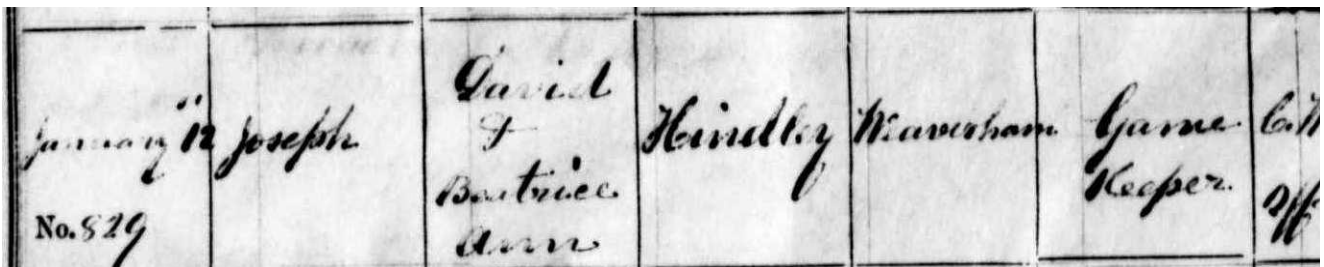 January 12
No. 829
Joseph
David
&
Beatrice
Ann
Hindley
Weaverham
Game
Keeper